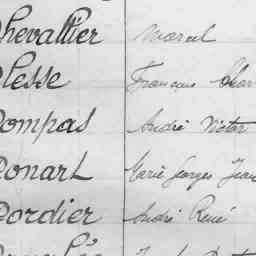 Chevallier Marcel
Plesse François Char
Pompas André Victor
Ponart Marie Georges Jean
Pordier André René